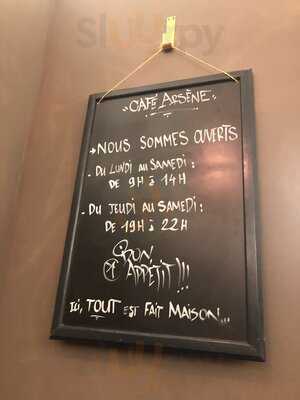 Sluurpy
CAFÉ ARSÈNE
→ NOUS SOMMES OUVERTS
- DU LUNDI AU SAMEDI :
DE 9H à 14H
- DU JEUDI AU SAMEDI :
DE 19H à 22H
BON
APPÉTIT!!!
Ici, TOUT EST FAIT MAISON...